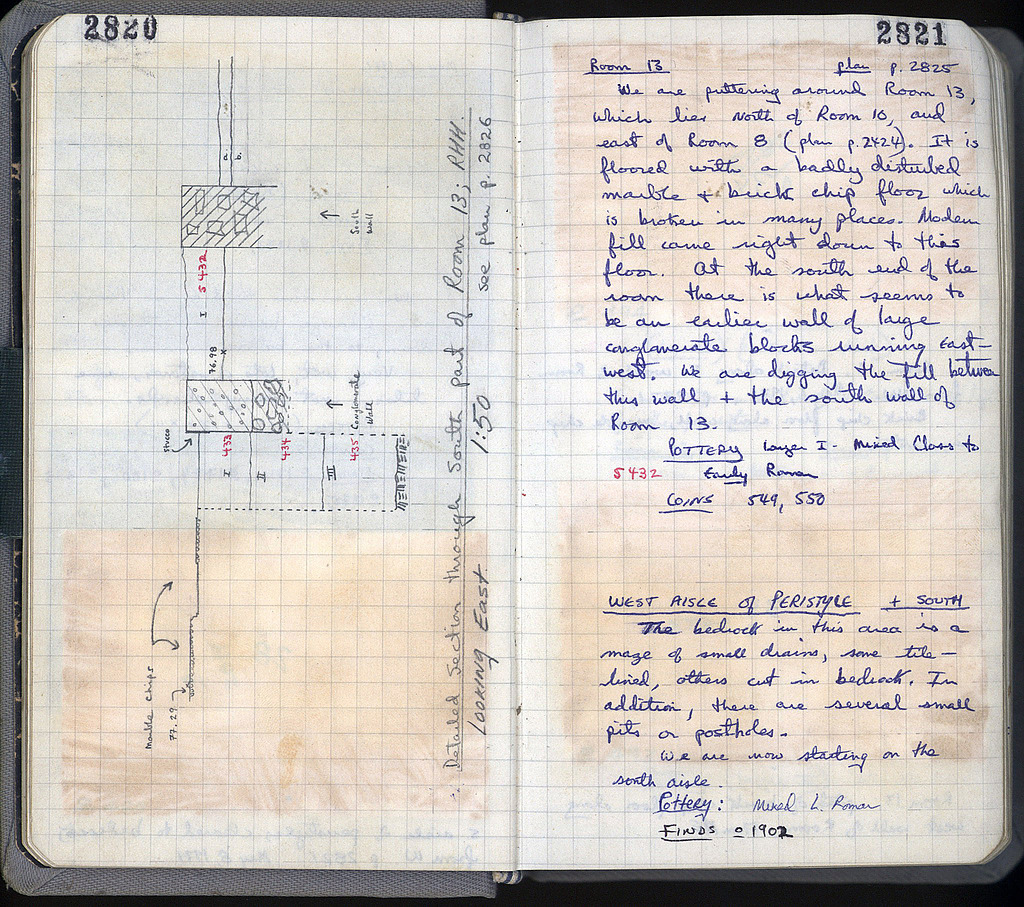 2820
a.
b.
↑ South
wall
I
5432
76.98
x
↑ Conglomerate
Wall
stucco
433
434
435
I
II
III
Marble chips
77.29
Detailed Section through South part of Room 13; RHH.
Looking East 1:50 see plan p. 2826
2821
Room 13 plan p. 2825
We are puttering around Room 13,
which lies north of Room 10, and
east of Room 8 (plan p. 2424). It is
floored with a badly disturbed
marble + brick chip floor which
is broken in many places. Modern
fill came right down to this
floor. At the south end of the
room there is what seems to
be an earlier wall of large
conglomerate blocks running East-
west. We are digging the fill between
this wall + the south wall of
Room 13.
POTTERY Layer I - Mixed Class to
5432 Early Roman
COINS 549, 550
WEST AISLE OF PERISTYLE + SOUTH
The bedrock in this area is a
maze of small drains, some tile-
lined, others cut in bedrock. In
addition, there are several small
pits or postholes.
We are now starting on the
south aisle.
Pottery: Mixed L. Roman
FINDS 1902